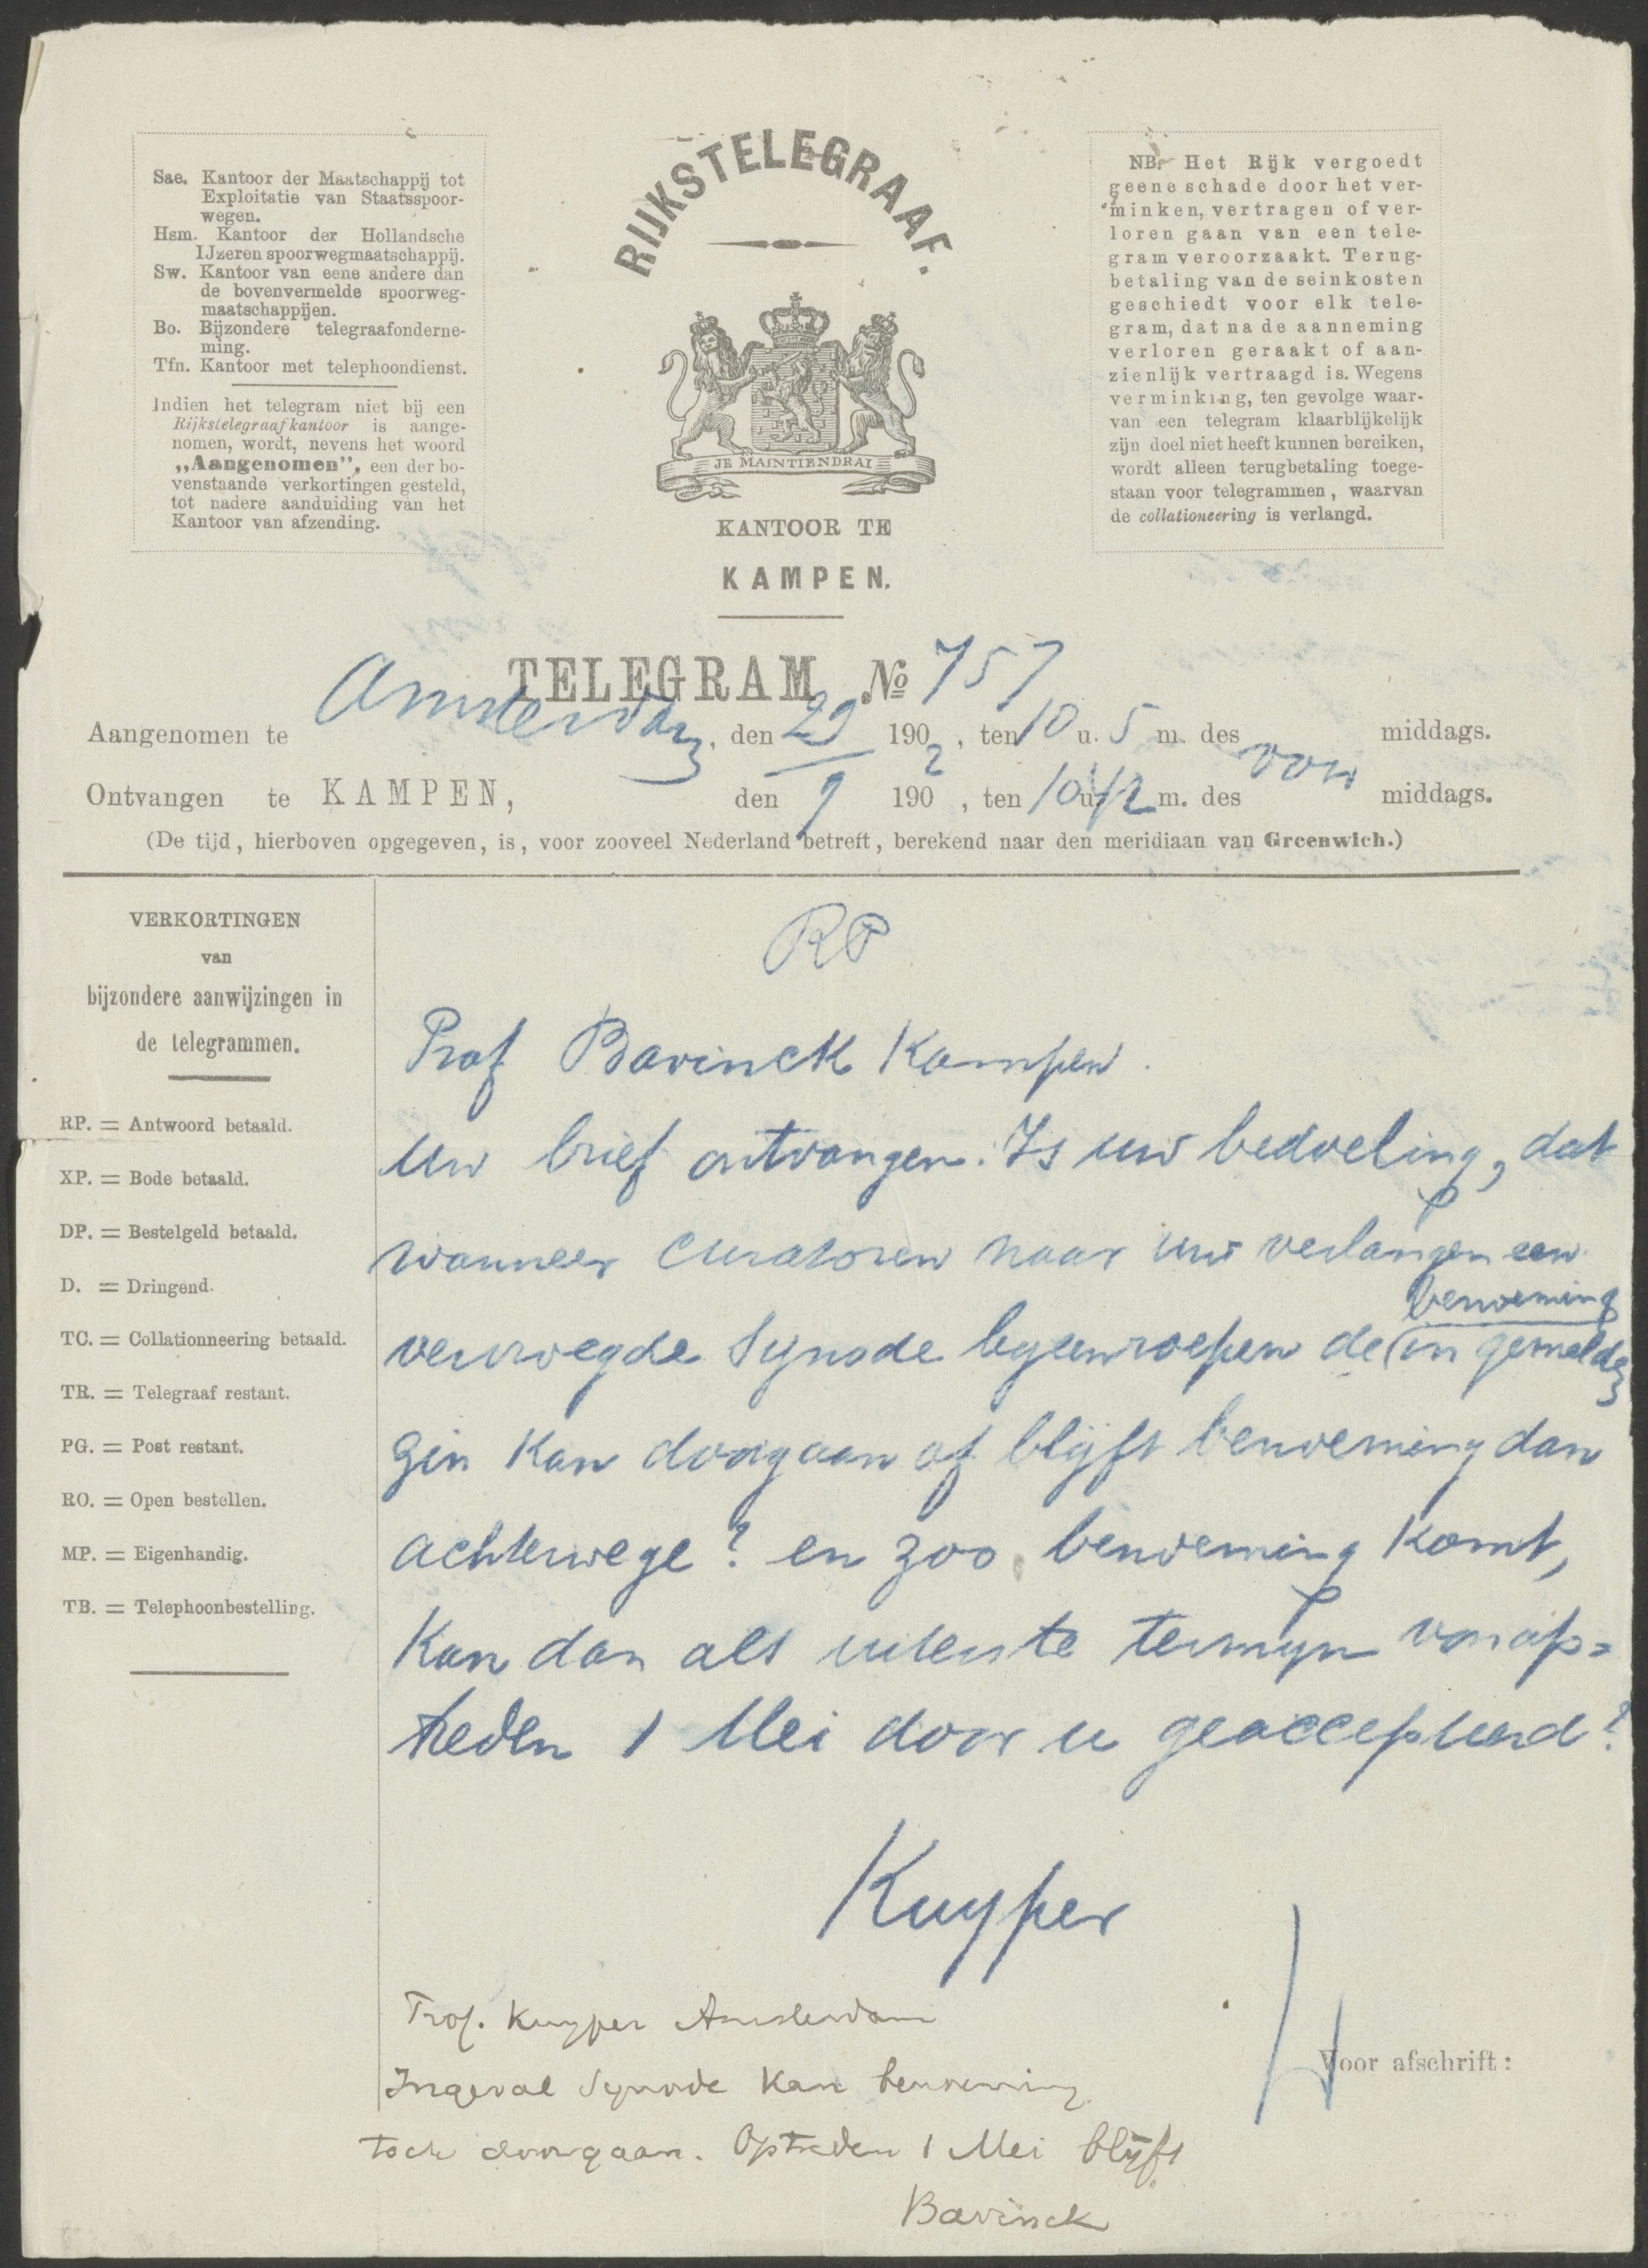 Sae. Kantoor der Maatschappij tot
Exploitatie van Staatsspoor-
wegen.
Hsm. Kantoor der Hollandsche
IJzeren spoorwegmaatschappij.
Sw. Kantoor van eene andere dan
de bovenvermelde spoorweg-
maatschappijen.
Bo. Bijzondere telegraafonderne-
ming.
Tfn. Kantoor met telephoondienst.
Indien het telegram niet bij een
Rijkstelegraafkantoor is aange-
nomen, wordt, nevens het woord
„Aangenomen”, een der bo-
venstaande verkortingen gesteld,
tot nadere aanduiding van het
Kantoor van afzending.
RIJKSTELEGRAAF.
JE MAINTIENDRAI
KANTOOR TE
KAMPEN.
NB. Het Rijk vergoedt
geene schade door het ver-
minken, vertragen of ver-
loren gaan van een tele-
gram veroorzaakt. Terug-
betaling van de seinkosten
geschiedt voor elk tele-
gram, dat na de aanneming
verloren geraakt of aan-
zienlijk vertraagd is. Wegens
verminking, ten gevolge waar-
van een telegram klaarblijkelijk
zijn doel niet heeft kunnen bereiken,
wordt alleen terugbetaling toege-
staan voor telegrammen, waarvan
de collationeering is verlangd.
TELEGRAM No 757
Aangenomen te Amsterdam, den 29 1902, ten 10 u. 5 m. des voor middags.
Ontvangen te KAMPEN, den 9 190 , ten 10 u. 12 m. des middags.
(De tijd, hierboven opgegeven, is, voor zooveel Nederland betreft, berekend naar den meridiaan van Greenwich.)
VERKORTINGEN
van
bijzondere aanwijzingen in
de telegrammen.
RP. = Antwoord betaald.
XP. = Bode betaald.
DP. = Bestelgeld betaald.
D. = Dringend.
TC. = Collationneering betaald.
TR. = Telegraaf restant.
PG. = Post restant.
RO. = Open bestellen.
MP. = Eigenhandig.
TB. = Telephoonbestelling.
RP
Prof Bavinck Kampen.
Uw brief ontvangen. Is uw bedoeling, dat
wanneer curatoren naar uw verlangen een
benoeming
vervroegde Synode byeenroepen de in gemelde
zin kan doorgaan of blijft benoeming dan
achterwege? en zoo benoeming komt,
kan dan als uiterste termyn van op=
treden 1 Mei door u geaccepteerd?
Kuyper
Prof. Kuyper Amsterdam
Ingeval Synode kan benoeming
toch doorgaan. Optreden 1 Mei blijft
Bavinck
Voor afschrift: